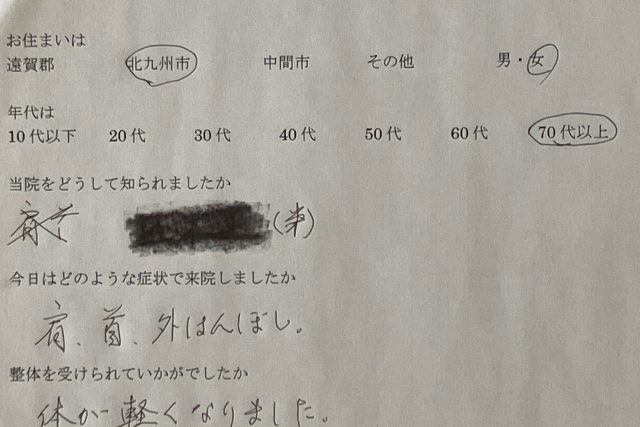 お住まいは
遠賀郡 北九州市 中間市 その他 男・女
年代は
10代以下 20代 30代 40代 50代 60代 70代以上
当院をどうして知られましたか
今日はどのような症状で来院しましたか
肩、首、外はんぼし。
整体を受けられていかがでしたか
体が軽くなりました。